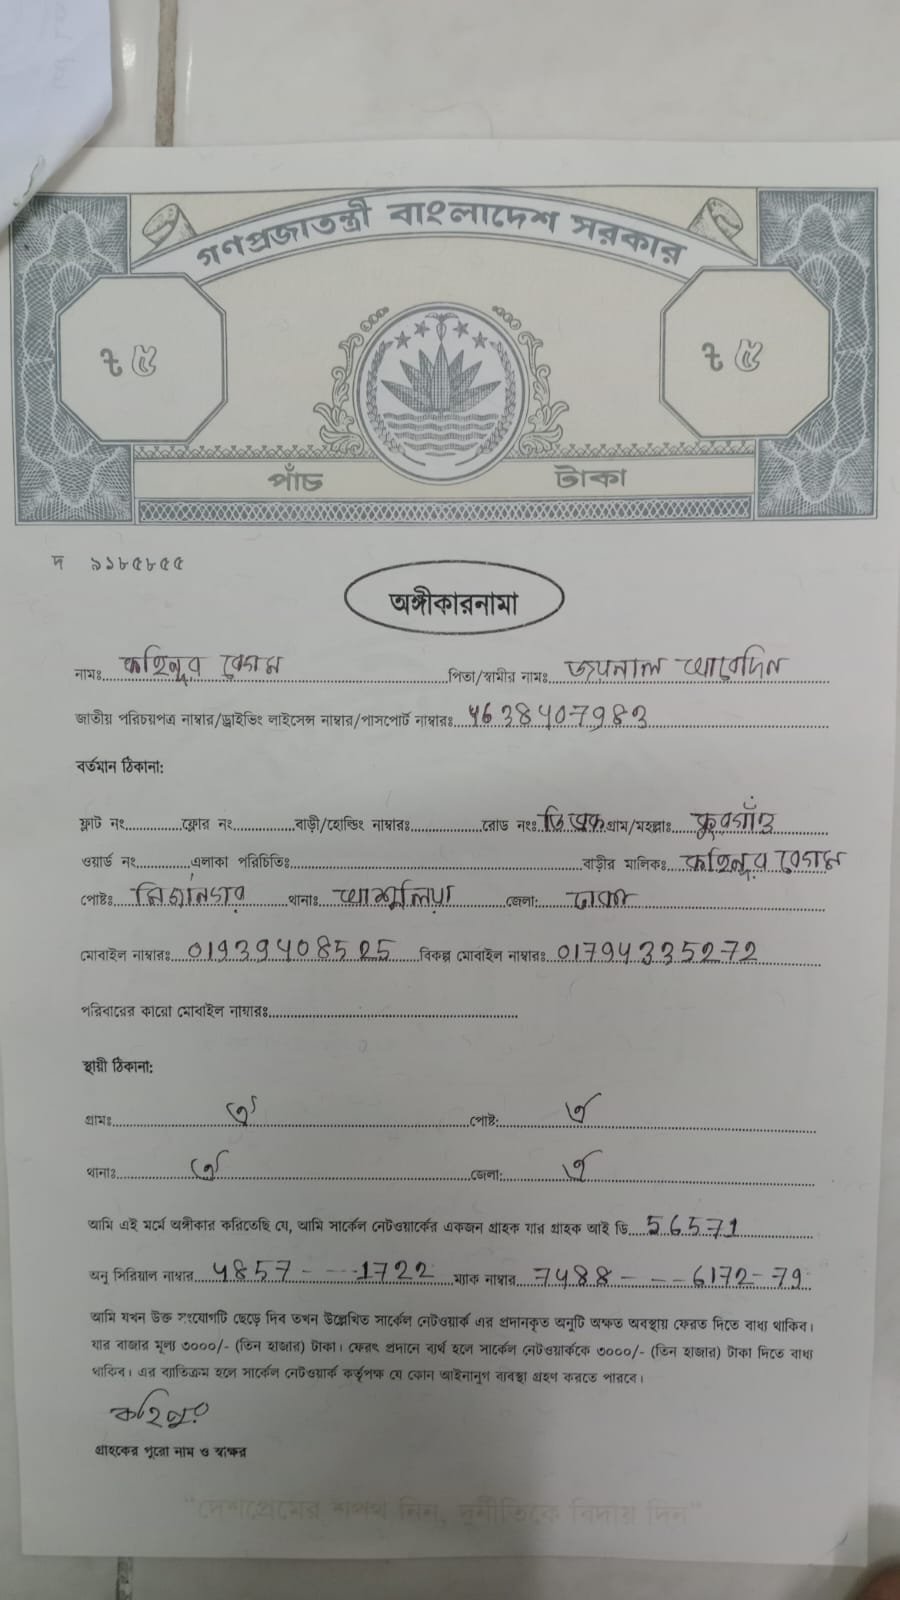 গণপ্রজাতন্ত্রী বাংলাদেশ সরকার
৳ ৫ ৳ ৫
পাঁচ টাকা
দ ৯১৮৫৮৫৫
অঙ্গীকারনামা
নামঃ কহিনূর বেগম পিতা/স্বামীর নামঃ জয়নাল আবেদিন
জাতীয় পরিচয়পত্র নাম্বার/ড্রাইভিং লাইসেন্স নাম্বার/পাসপোর্ট নাম্বারঃ 4638407983
বর্তমান ঠিকানা:
ফ্লাট নং ফ্লোর নং বাড়ী/হোল্ডিং নাম্বারঃ রোড নংঃ গ্রাম/মহল্লাঃ কুরগাঁও
ওয়ার্ড নং এলাকা পরিচিতিঃ বাড়ীর মালিকঃ কহিনূর বেগম
পোষ্টঃ মির্জানগর থানাঃ আশুলিয়া জেলা: ঢাকা
মোবাইল নাম্বারঃ 01939408525 বিকল্প মোবাইল নাম্বারঃ 01794335272
পরিবারের কারো মোবাইল নাম্বারঃ
স্থায়ী ঠিকানা:
গ্রামঃ ঐ পোষ্ট: ঐ
থানাঃ ঐ জেলা: ঐ
আমি এই মর্মে অঙ্গীকার করিতেছি যে, আমি সার্কেল নেটওয়ার্কের একজন গ্রাহক যার গ্রাহক আই ডি 56571
অনু সিরিয়াল নাম্বার 4857 - --- 1722 ম্যাক নাম্বার 7488 - -- 6172-79
আমি যখন উক্ত সংযোগটি ছেড়ে দিব তখন উল্লেখিত সার্কেল নেটওয়ার্ক এর প্রদানকৃত অনুটি অক্ষত অবস্থায় ফেরত দিতে বাধ্য থাকিব।
যার বাজার মূল্য ৩০০০/- (তিন হাজার) টাকা। ফেরৎ প্রদানে ব্যর্থ হলে সার্কেল নেটওয়ার্ককে ৩০০০/- (তিন হাজার) টাকা দিতে বাধ্য
থাকিব। এর ব্যতিক্রম হলে সার্কেল নেটওয়ার্ক কর্তৃপক্ষ যে কোন আইনানুগ ব্যবস্থা গ্রহণ করতে পারবে।
কহিনুর
গ্রাহকের পুরো নাম ও স্বাক্ষর
"দেশপ্রেমের শপথ নিন, দুর্নীতিকে বিদায় দিন"